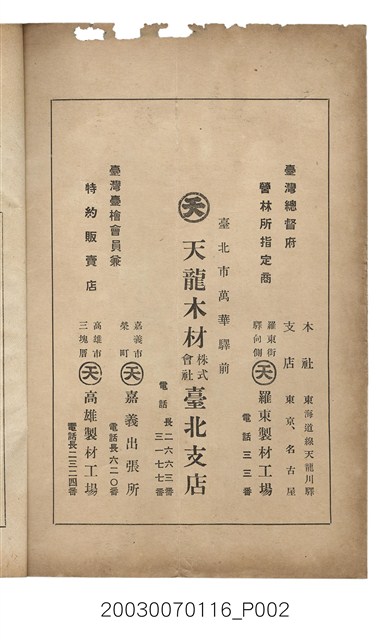 臺灣總督府
營林所指定商
本社 東海道線天龍川驛
支店 東京、名古屋
羅東街
驛向側
天 羅東製材工場
電話 三三番
臺北市萬華驛前
天 天龍木材株式會社臺北支店
電話 長二六六三番
三一七七番
臺灣臺檜會員兼
特約販賣店
嘉義市
榮町
天 嘉義出張所
電話長六二〇番
高雄市
三塊厝
天 高雄製材工場
電話長二三二四番
20030070116_P002